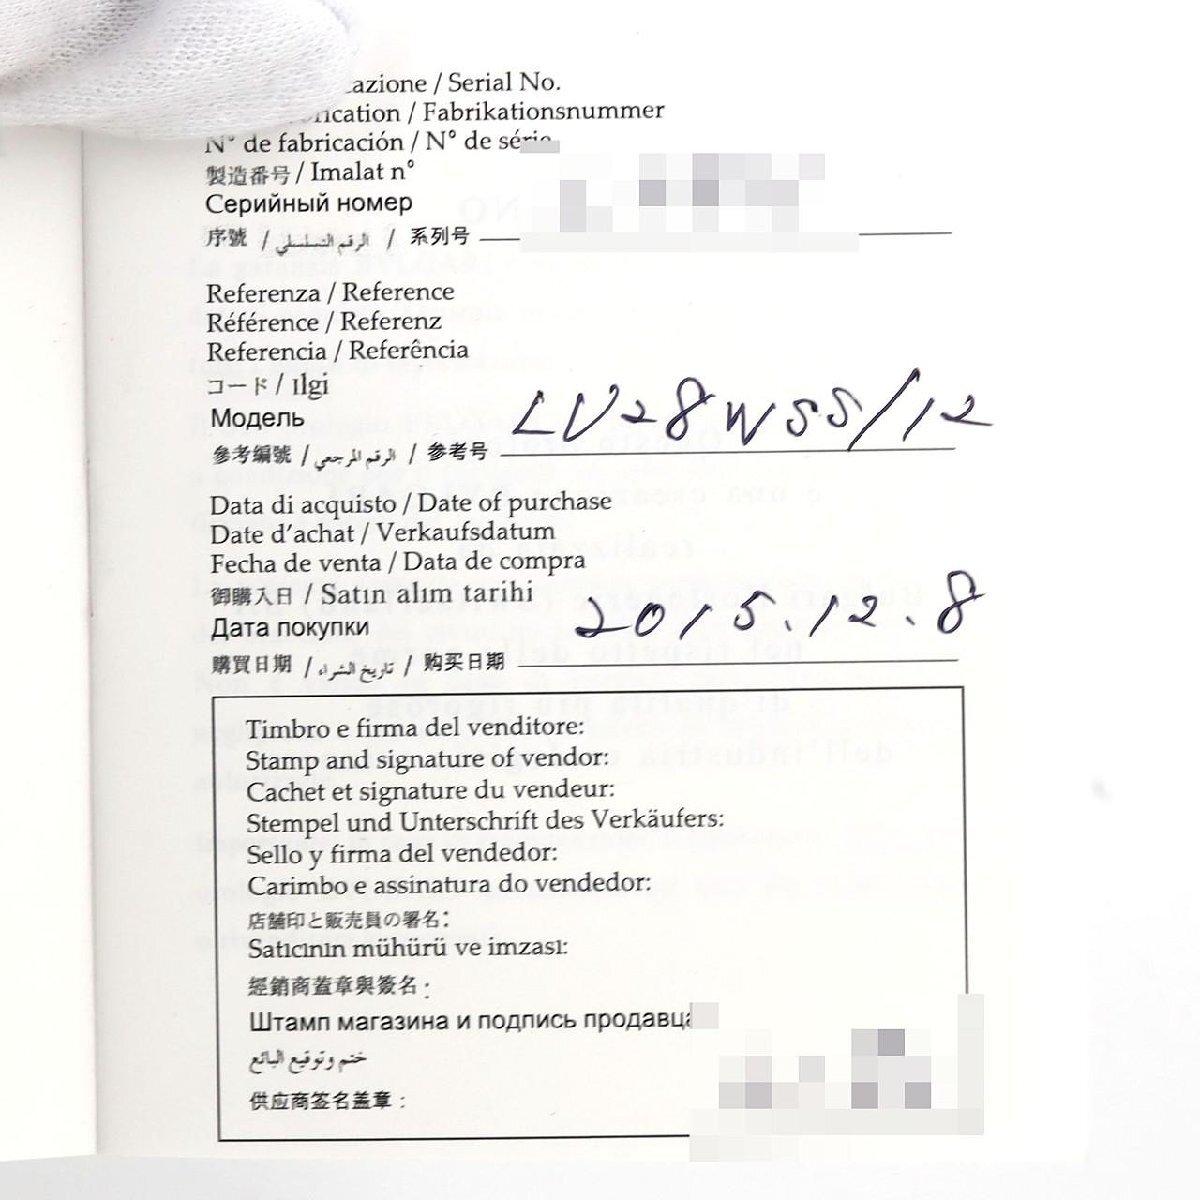 azione / Serial No.
ication / Fabrikationsnummer
N° de fabricación / N° de série
製造番号 / Imalat n°
Серийный номер
序號 / الرقم التسلسلي / 系列号
Referenza / Reference
Référence / Referenz
Referencia / Referência
コード / ılgi
Модель
參考編號 / الرقم المرجعي / 参考号 LV28WSS/12
Data di acquisto / Date of purchase
Date d'achat / Verkaufsdatum
Fecha de venta / Data de compra
御購入日 / Satın alım tarihi
Дата покупки
購買日期 / تاريخ الشراء / 购买日期 2015.12.8
Timbro e firma del venditore:
Stamp and signature of vendor:
Cachet et signature du vendeur:
Stempel und Unterschrift des Verkäufers:
Sello y firma del vendedor:
Carimbo e assinatura do vendedor:
店舗印と販売員の署名:
Satıcının mühürü ve imzası:
經銷商蓋章與簽名:
Штамп магазина и подпись продавца
ختم وتوقيع البائع
供应商签名盖章: